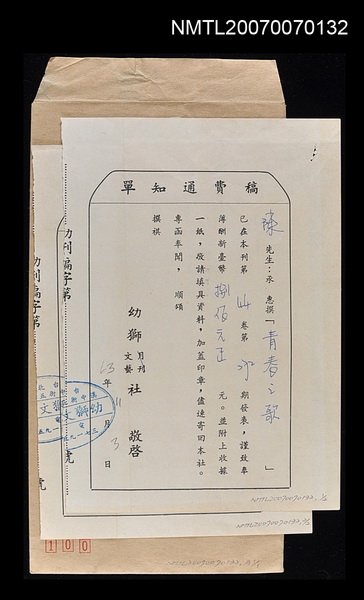 NMTL20070070132
稿費通知單
陳先生:承 惠撰「青春之歌」
已在本刊第 卷第 期發表,謹致奉
薄酬新臺幣捌佰元正 元。並附上收據
一紙,敬請填具資料,加蓋印章,儘速寄回本社。
專函奉聞, 順頌
撰祺
幼獅月刊文藝社 敬啓
63年11月3日
幼刊稿字第
號
幼刊稿字第
號
NMTL20070070132
100